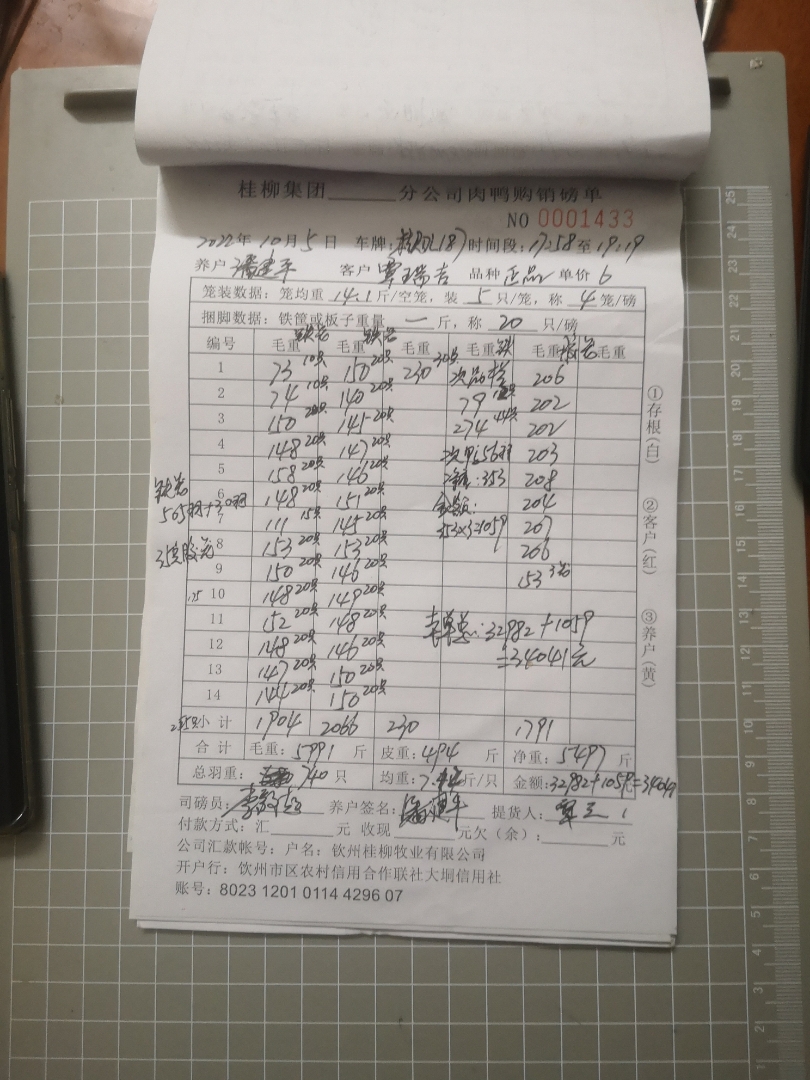 桂柳集团______分公司肉鸭购销磅单
NO 0001433
2022年10月5日 车牌: 时间段:17:58至19:19
养户 潘建平 客户 覃瑞吉 品种 正品 单价 6
笼装数据:笼均重 14.1 斤/空笼,装 5 只/笼,称 4 笼/磅
捆脚数据:铁筐或板子重量 一 斤,称 20 只/磅
编号 毛重 毛重 毛重 毛重 毛重 毛重
1 73 10只 150 20只 230 30只 206
2 74 10只 140 20只 79 202
3 150 20只 145 20只 274 44只 202
4 148 20只 147 20只 203
5 158 20只 146 20只 净重:353 208
6 148 20只 151 20只 金额: 204
7 111 15只 145 20只 353×3=1059 207
8 153 20只 153 20只 206
9 150 20只 146 20只 153 3笼
10 148 20只 149 20只
11 152 20只 148 20只 本单总:32982+1059
12 148 20只 146 20只 =34041元
13 147 20只 150 20只
14 144 20只 150 20只
小计 1904 2066 230 1791
合计 毛重:5991 斤 皮重:494 斤 净重:5497 斤
总羽重: 740 只 均重: 斤/只 金额:32982+1059=34041
司磅员: 养户签名:潘建平 提货人:
付款方式:汇______元 收现______元欠(余):______元
公司汇款帐号:户名:钦州桂柳牧业有限公司
开户行:钦州市区农村信用合作联社大垌信用社
账号:8023 1201 0114 4296 07
①存根(白)
②客户(红)
③养户(黄)
25
24
23
22
21
20
19
18
17
16
15
14
13
12
11
10
9
8
7
6
5
4
3
2
1